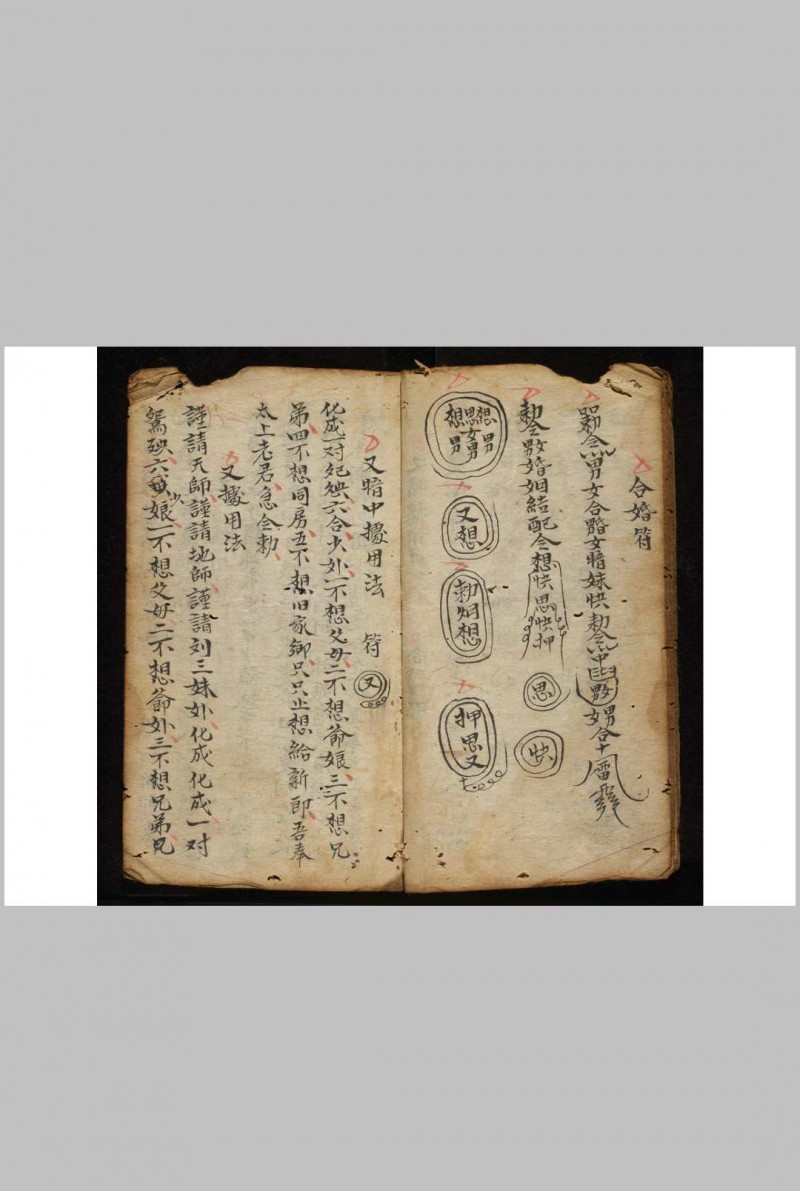 合婚符
勅令 男女合 女暗妹快 勅令 男合
勅令 婚姻結配合想快思快押
思
快
想思想男女男男
又想
勅姻想
押思又
又暗中擾用法 符 又
化成一对妃殃六合少外一不想父母二不想爺娘三不想兄
弟四不想同房五不想旧家鄉只只止想給新郎吾奉
太上老君急令勅
又擾用法
謹請天師謹請地師謹請刘三妹外化成化成一对
鴛殃六 少娘一不想父母二不想爺外三不想兄弟兄